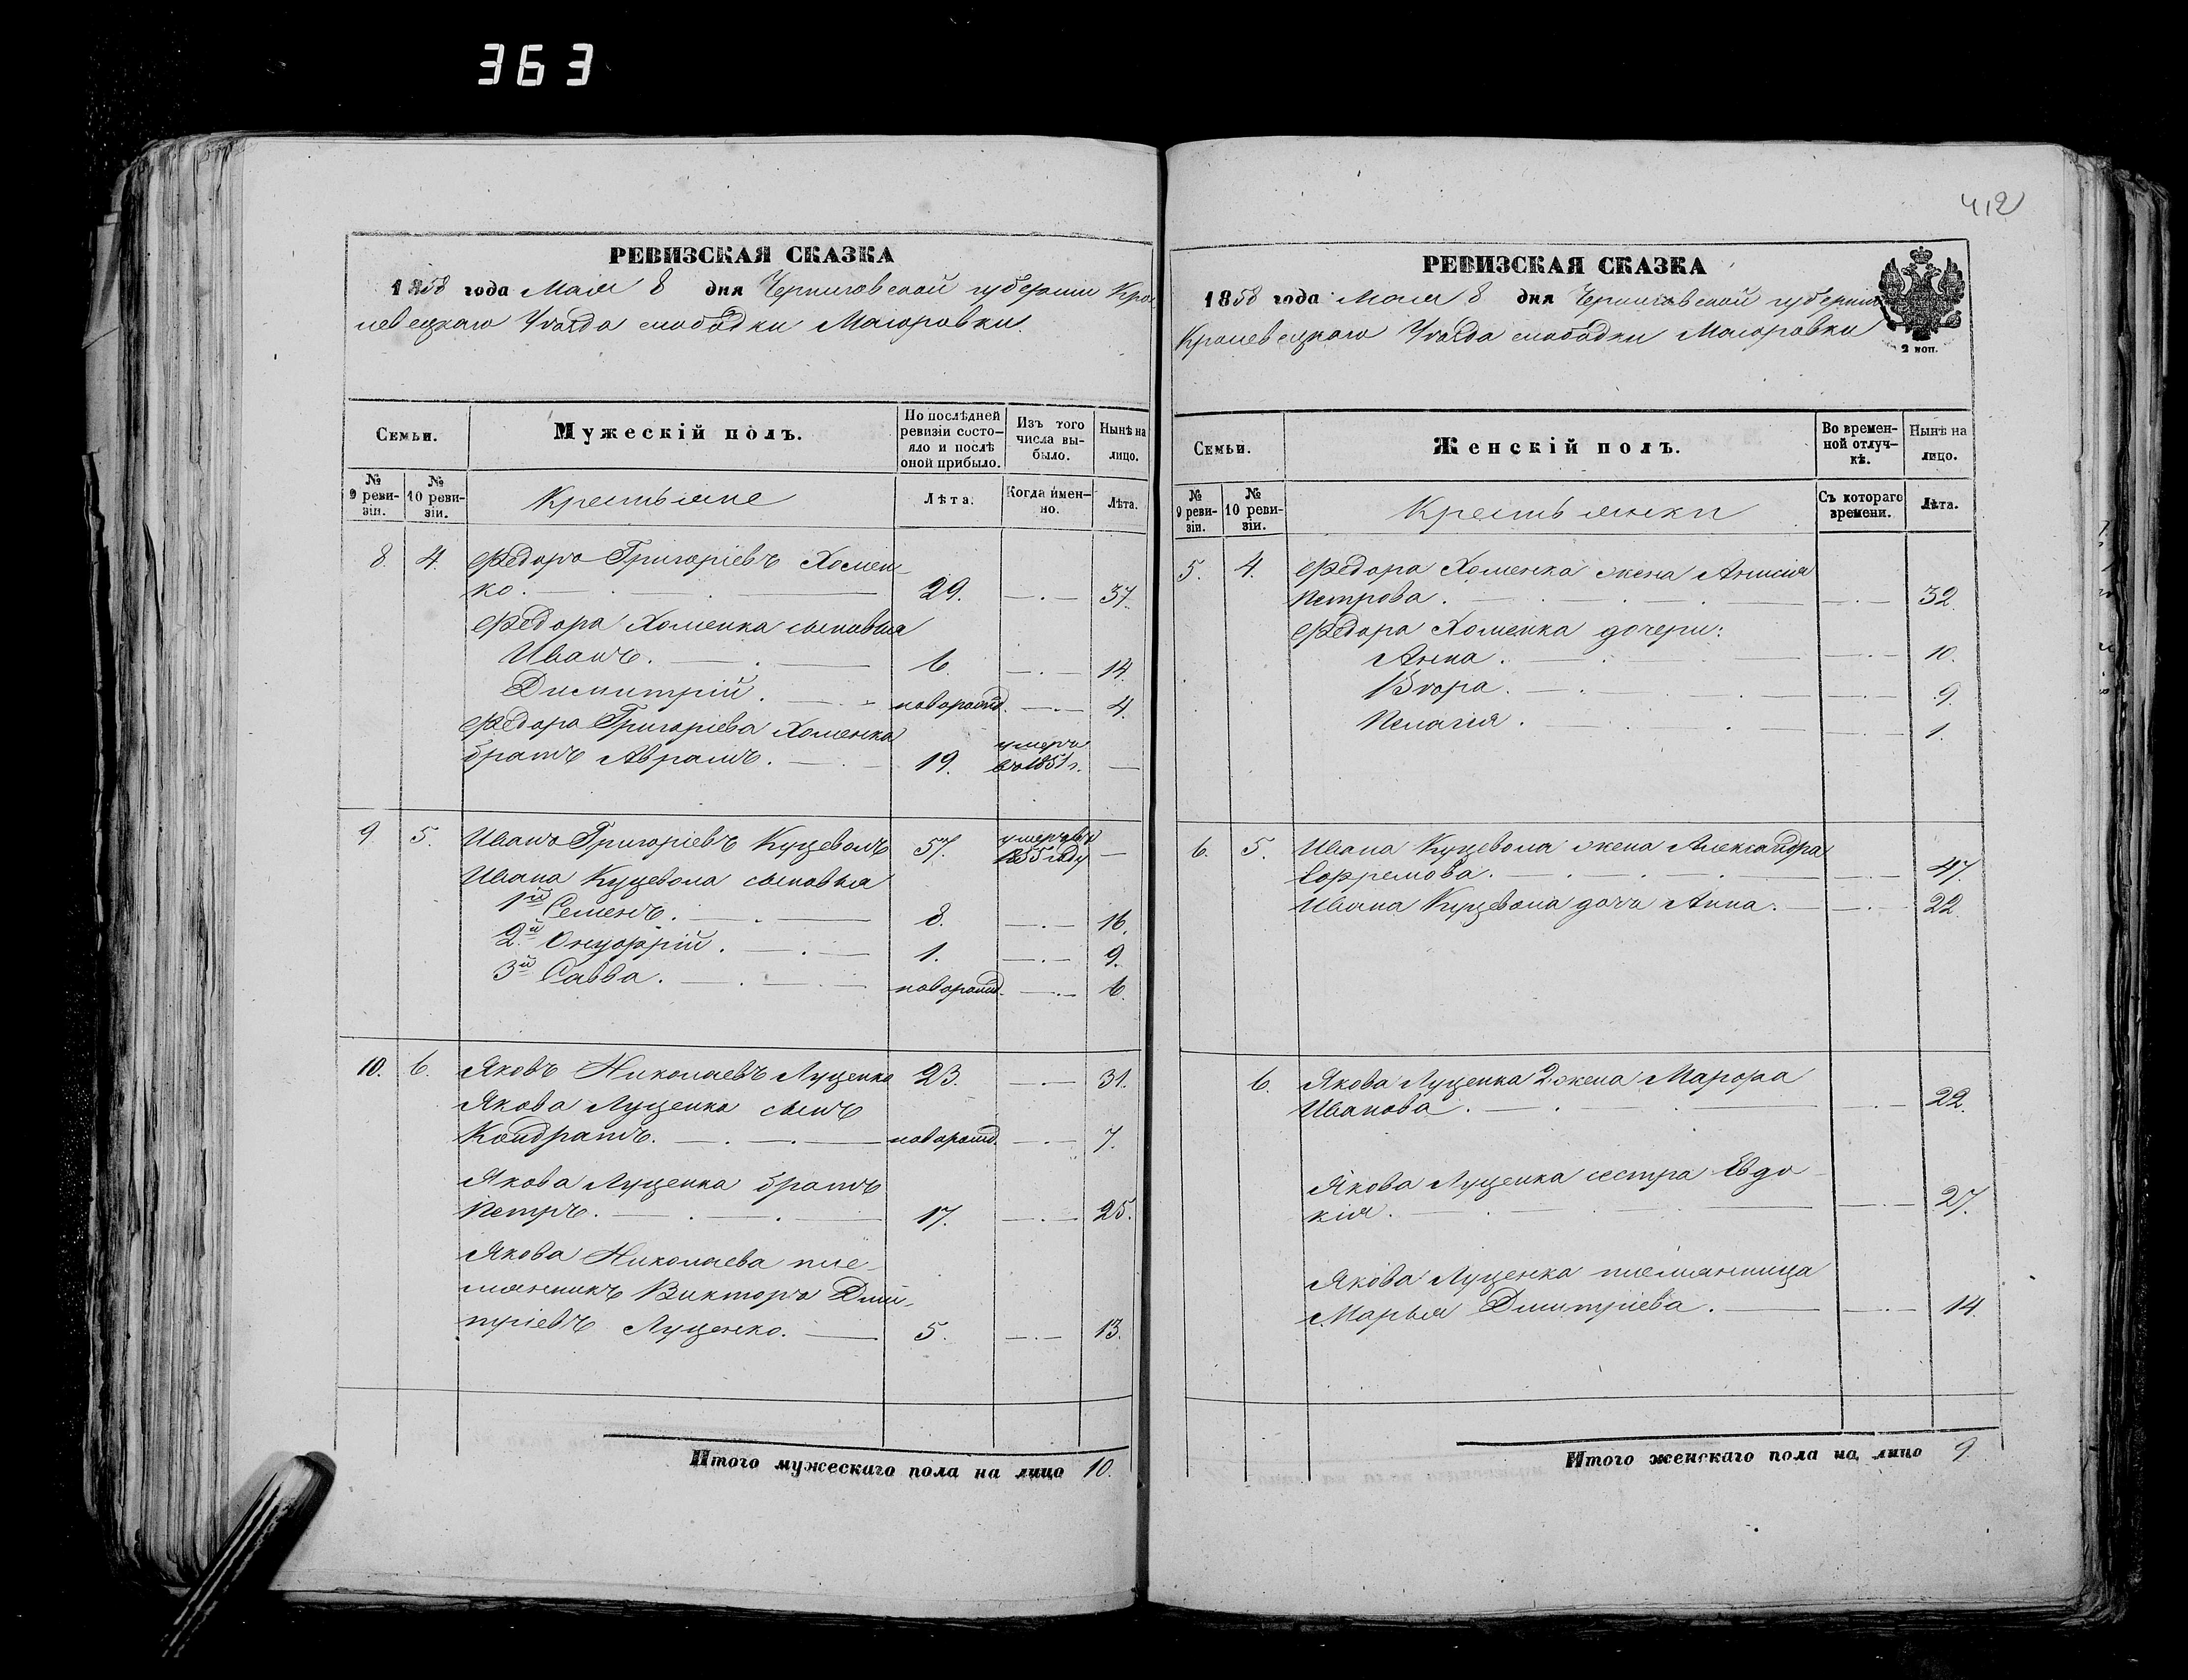 363
412
РЕВИЗСКАЯ СКАЗКА
1858 года Маия 8 дня Черниговской губернии Кро
левецкаго Уѣзда слободки Маіоровки.
Семьи.
Мужескій полъ.
По послѣдней ревизіи состо-
яло и послѣ оной прибыло.
Изъ того числа вы-
было.
Нынѣ на лицо.
№ 9 реви-
зіи.
№ 10 реви-
зіи.
Крестьяне
Лѣта.
Когда имен-
но.
Лѣта.
8. 4. Федоръ Григоріевъ Хомен-
ко. 29. 37.
Федора Хоменка сыновья
Иванъ. 6. 14.
Димитрій. новорожд. 4.
Федора Григоріева Хоменка
братъ Аврамъ. 19. умеръ въ 1851 г.
9. 5. Иванъ Григоріевъ Куцеволъ 57. умеръ въ 1855 году
Ивана Куцевола сыновья
1й Семенъ. 8. 16.
2й Онуфрій. 1. 9.
3й Савва. новорожд. 6.
10. 6. Яковъ Николаевъ Луценко 23. 31.
Якова Луценка сынъ
Кондратъ. новорожд. 7.
Якова Луценка братъ
Петръ. 17. 25.
Якова Николаева пле-
мянникъ Викторъ Дми-
тріевъ Луценко. 5. 13.
Итого мужескаго пола на лицо 10.
РЕВИЗСКАЯ СКАЗКА
1858 года Маия 8 дня Черниговской губерніи
Кролевецкаго Уѣзда слободки Маіоровки
2 коп.
Семьи.
Женскій полъ.
Во времен-
ной отлуч-
кѣ.
Нынѣ на лицо.
№ 9 реви-
зіи.
№ 10 реви-
зіи.
Крестьянки
Съ котораго времени.
Лѣта.
5. 4. Федора Хоменка жена Анисия
Петрова. 32.
Федора Хоменка дочери:
Анна. 10.
Вѣра. 9.
Пелагія. 1.
6. 5. Ивана Куцевола жена Александра
Ефремова. 47.
Ивана Куцевола дочь Анна. 22.
6. Якова Луценка 2 жена Марфа
Иванова. 22.
Якова Луценка сестра Евдо
кія. 27.
Якова Луценка племянница
Марья Дмитріева. 14.
Итого женскаго пола на лицо 9.